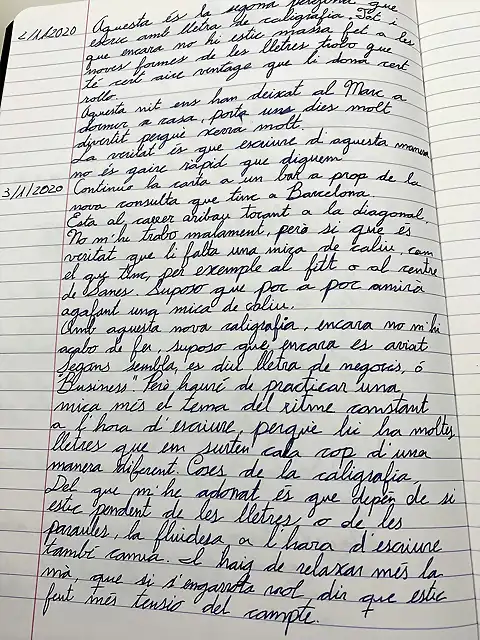 2/1/2020 Aquesta és la segona pagina que
escric amb lletra de caligrafia. Tot i
que encara no hi estic massa fet a les
noves formes de les lletres trobo que
té cert aire vintage que li dona cert
rollo.
Aquesta nit ens han deixat al Marc a
dormir a casa, porta uns dies molt
divertit perquè xerra molt.
La veritat és que escriure d'aquesta manera
no és gaire ràpid que diguem
3/1/2020 Continuo la carta a un bar a prop de la
nova consulta que tinc a Barcelona.
Esta al carrer aribau tocant a la diagonal.
No m'hi trobo malament, però si que és
veritat que li falta una mica de caliu, com
el que tinc, per exemple al fitt o al centre
de Sanes. Suposo que poc a poc anirà
agafant una mica de caliu.
Amb aquesta nova caligrafia, encara no m'hi
acabo de fer, suposo que encara es aviat
Segons sembla, es diu lletra de negocis, o
"Business". Però hauré de practicar una
mica més el tema del ritme constant
a l'hora d'escriure, perque hi ha moltes
lletres que em surten cada cop d'una
manera diferent. Coses de la caligrafia.
Del que m'he adonat és que depèn de si
estic pendent de les lletres, o de les
paraules, la fluidesa a l'hora d'escriure
també canvia. I haig de relaxar més la
mà, que si s'engarrota molt, dir que estic
fent més tensio del compte.